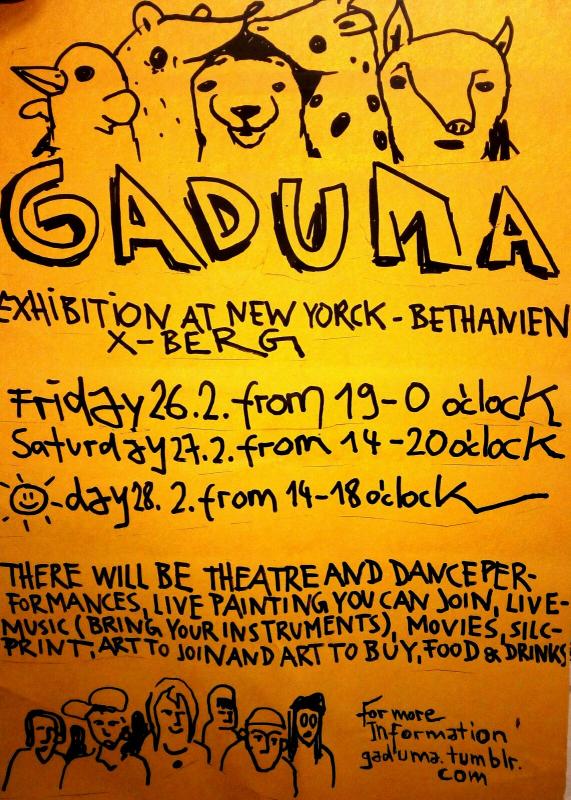 GADUMA
EXHIBITION AT NEW YORCK - BETHANIEN
X-BERG
Friday 26.2. from 19-0 o'clock
Saturday 27.2. from 14-20 o'clock
-day 28. 2. from 14-18 o'clock
THERE WILL BE THEATRE AND DANCEPER-
FORMANCES, LIVE PAINTING YOU CAN JOIN, LIVE-
MUSIC (BRING YOUR INSTRUMENTS), MOVIES, SILC-
PRINT, ART TO JOIN AND ART TO BUY, FOOD & DRINKS!
for more
Information
gaduma.tumblr.
com